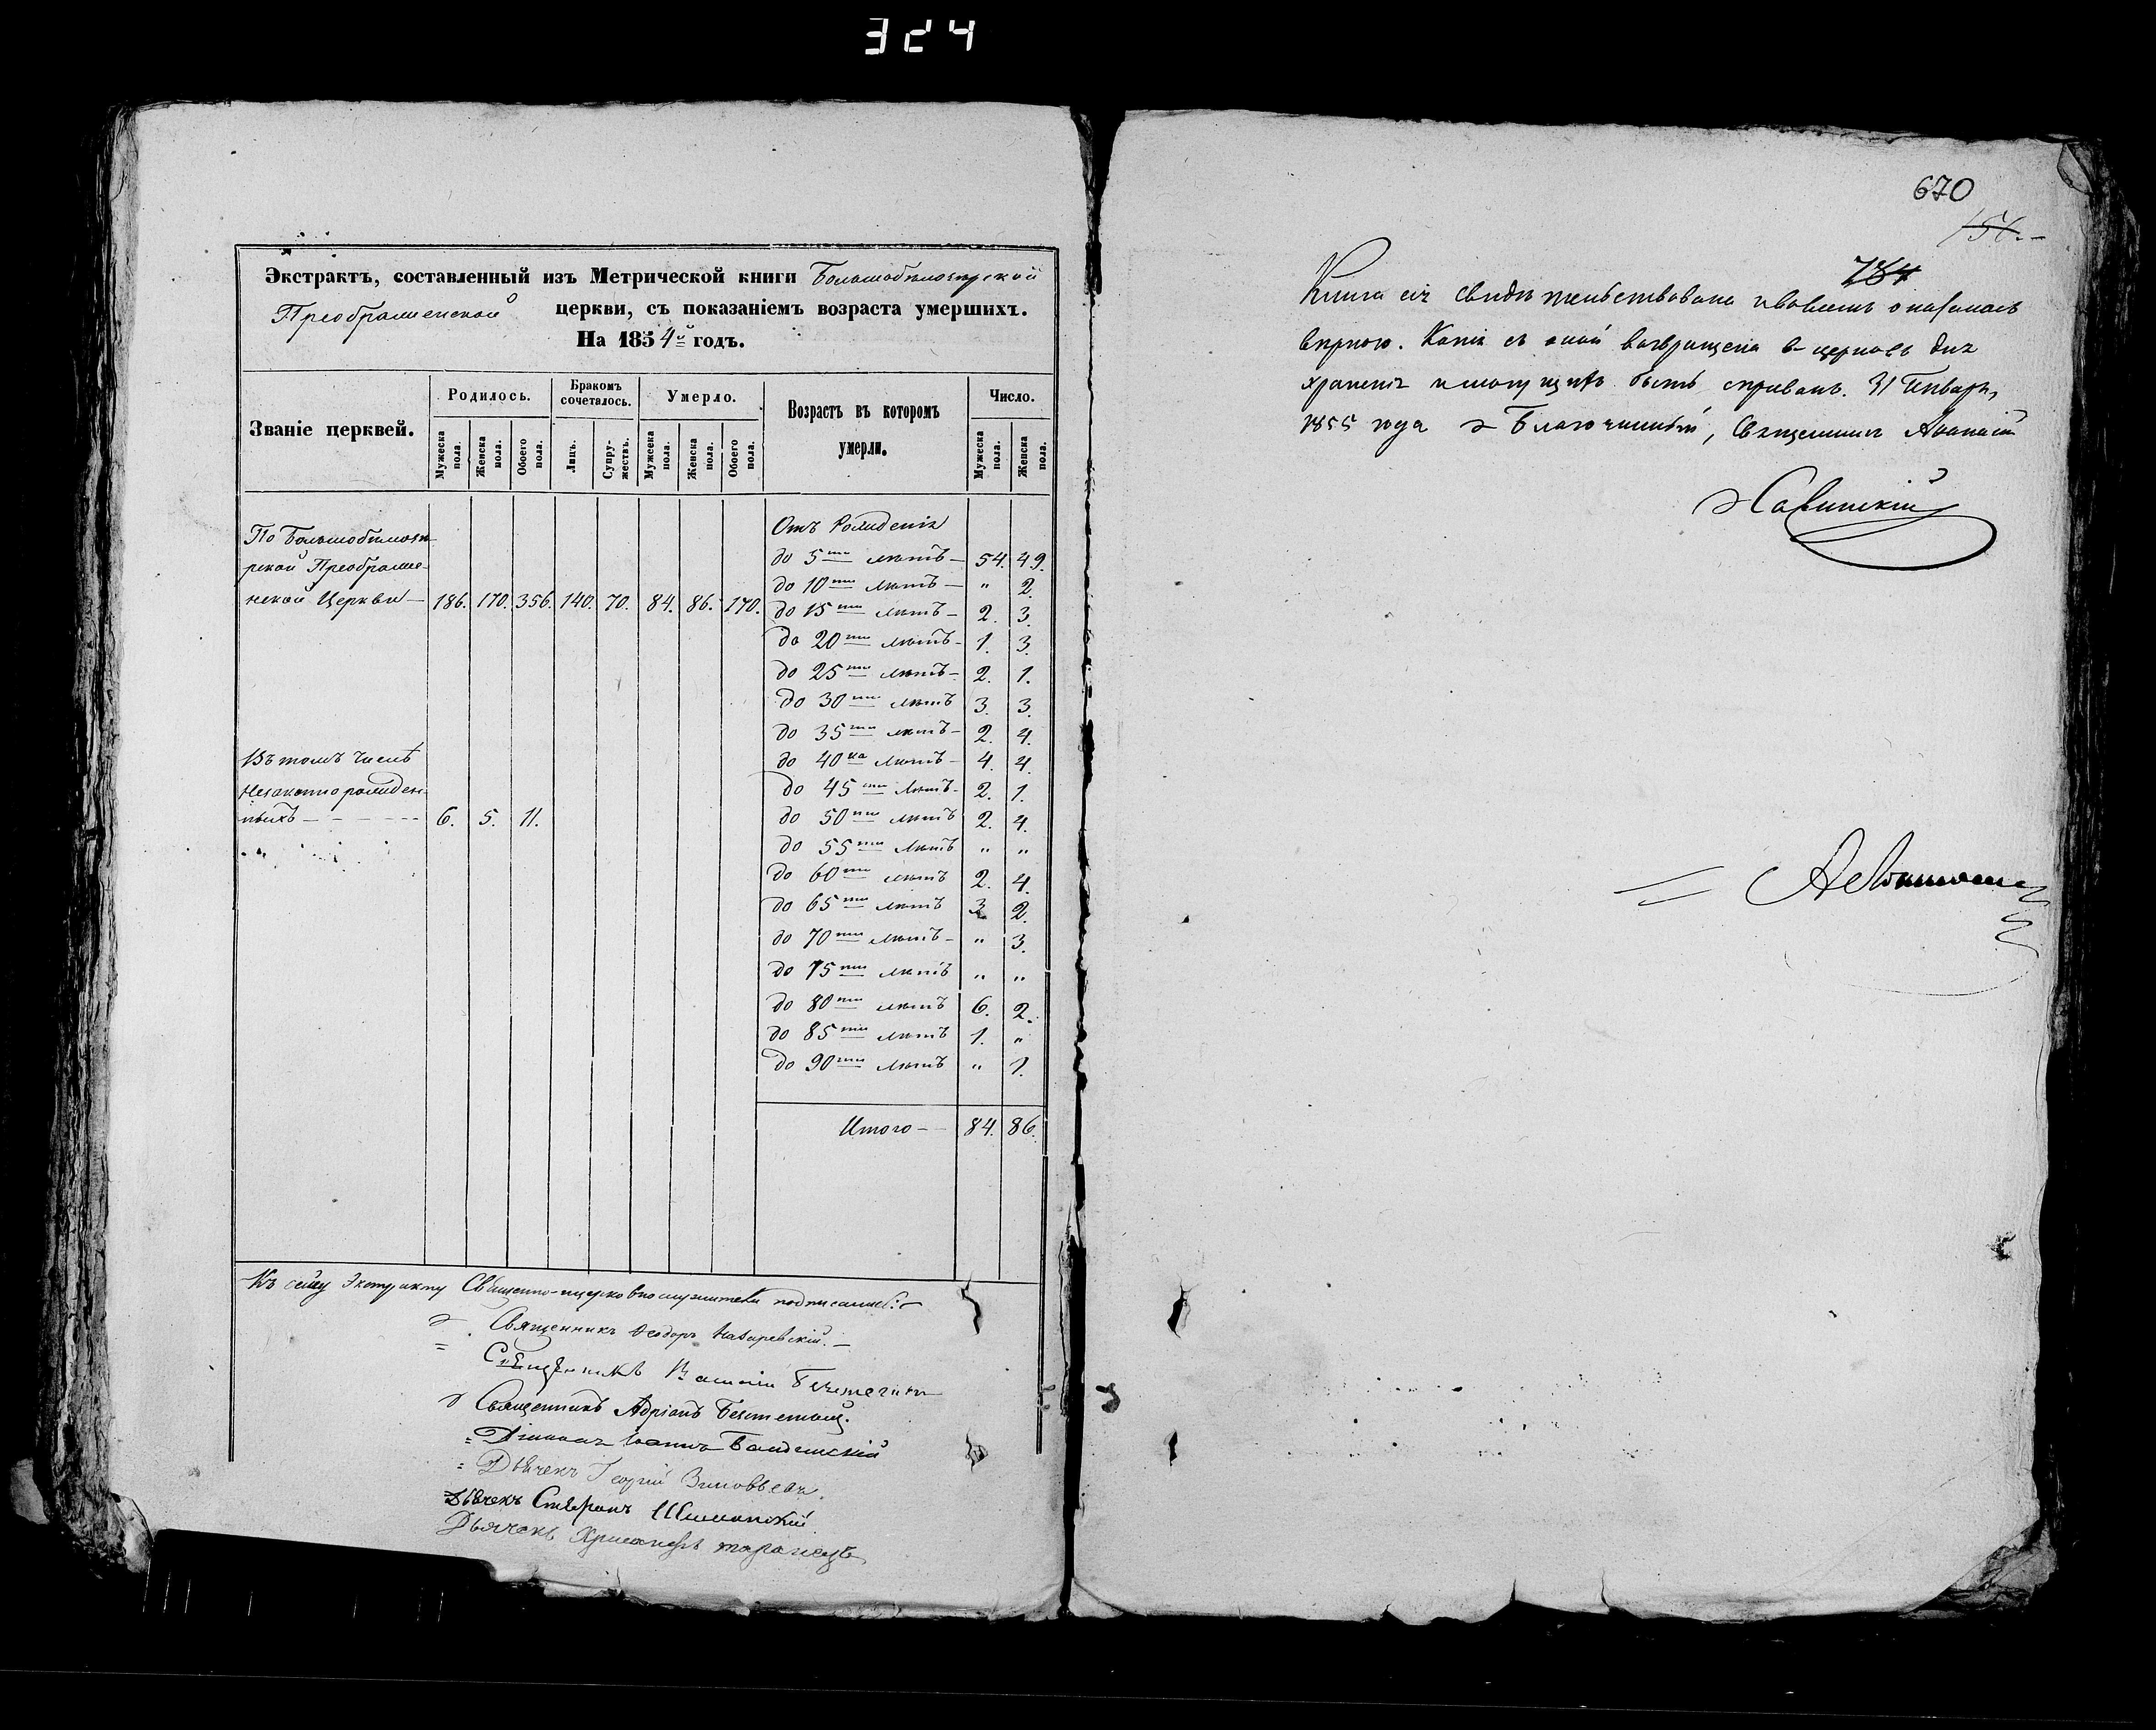 324
Экстрактъ, составленный изъ Метрической книги Большобѣлозерской
Преображенской церкви, съ показаніемъ возраста умершихъ.
На 1854й годъ.
Званіе церквей.
Родилось.
Бракомъ сочеталось.
Умерло.
Возрастъ въ которомъ умерли.
Число.
Мужеска пола.
Женска пола.
Обоего пола.
Лицъ.
Супружествъ.
Мужеска пола.
Женска пола.
Обоего пола.
Мужеска пола.
Женска пола.
По Большобѣлозе-
рской Преображе-
нской Церкви — 186. 170. 356. 140. 70. 84. 86. 170.
Въ томъ числѣ
Незаконнорожден-
ныхъ - - - - 6. 5. 11.
Отъ Рожденія
до 5ти лѣтъ — 54. 49.
до 10ти лѣтъ — " 2.
до 15ти лѣтъ — 2. 3.
до 20ти лѣтъ - 1. 3.
до 25ти лѣтъ - 2. 1.
до 30ти лѣтъ 3. 3.
до 35ти лѣтъ - 2. 4.
до 40ка лѣтъ - 4. 4.
до 45ти лѣтъ - 2. 1.
до 50ти лѣтъ 2. 4.
до 55ти лѣтъ " "
до 60ти лѣтъ 2. 4.
до 65ти лѣтъ 3. 2.
до 70ти лѣтъ - " 3.
до 75ти лѣтъ " "
до 80ти лѣтъ 6. 2.
до 85ти лѣтъ 1. "
до 90ти лѣтъ " 1.
Итого — 84. 86.
Къ сему Экстракту Священно-церковнослужители подписались:
Священникъ Ѳеодоръ Назаревскій. —
Священникъ Василій
Священникъ Адріанъ
Діаконъ Іоаннъ
Дьячекъ Георгій Зиновьевъ.
Дьячекъ Стефанъ Шиманскій
Дьячекъ Хрисанфъ
670
156.
784
Книга сія свидѣтельствована и во всемъ оказалась
вѣрною. Копія съ оной возвращена въ церковь для
храненія и могущихъ быть справокъ. 31 Январь,
1855 года Благочинный, Священникъ Аѳанасій
Савинскій